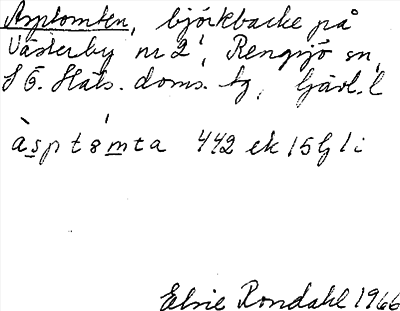 Asptomten, björkbacke på
Västerby nr 2, Rengsjö sn,
S Ö. Häls. doms. tg, Gävl. l
àspt8mta 442 ek 15G 1i
Elsie Rondahl 1966